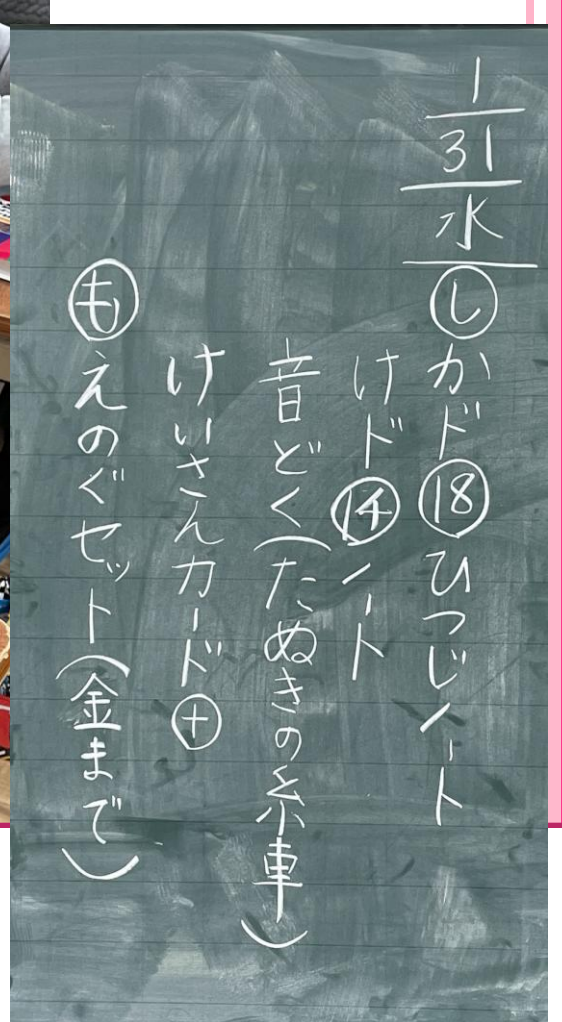 1/31 水
し かド⑱ひつじノート
けド⑭ノート
音どく(たぬきの糸車)
けいさんカード⊕
も えのぐセット(金まで)